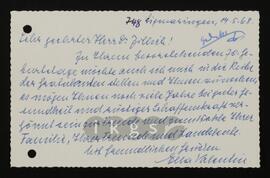 748 Sigmaringen, 14.5.68.
Sehr geehrter Herr Dr. Zillich!
Zu Ihrem bevorstehenden 70. Ge-
burtstage möchte auch ich mich in die Reihe
der Gratulanten stellen und Ihnen wünschen,
es mögen Ihnen noch viele Jahre bei guter Ge-
sundheit und Schaffenskraft ver-
gönnt sein Ihrer
Familie, Ihrer
Mit freundlichen Grüssen
Valentin